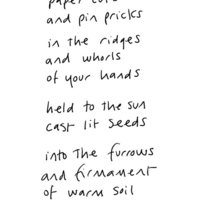 and pin pricks
in the ridges
and whorls
of your hands
held to the sun
cast lit seeds
into The furrows
and firmament
of warm soil